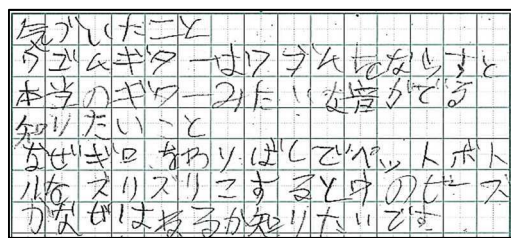 気づいたこと
ワゴムギターはワゴムをならすと
本当のギターみたいな音がでる
知りたいこと
なぜギロ をわりばしでペットボト
ルを ズリズリこするとウのビーズ
がなぜはねるか知りたいです